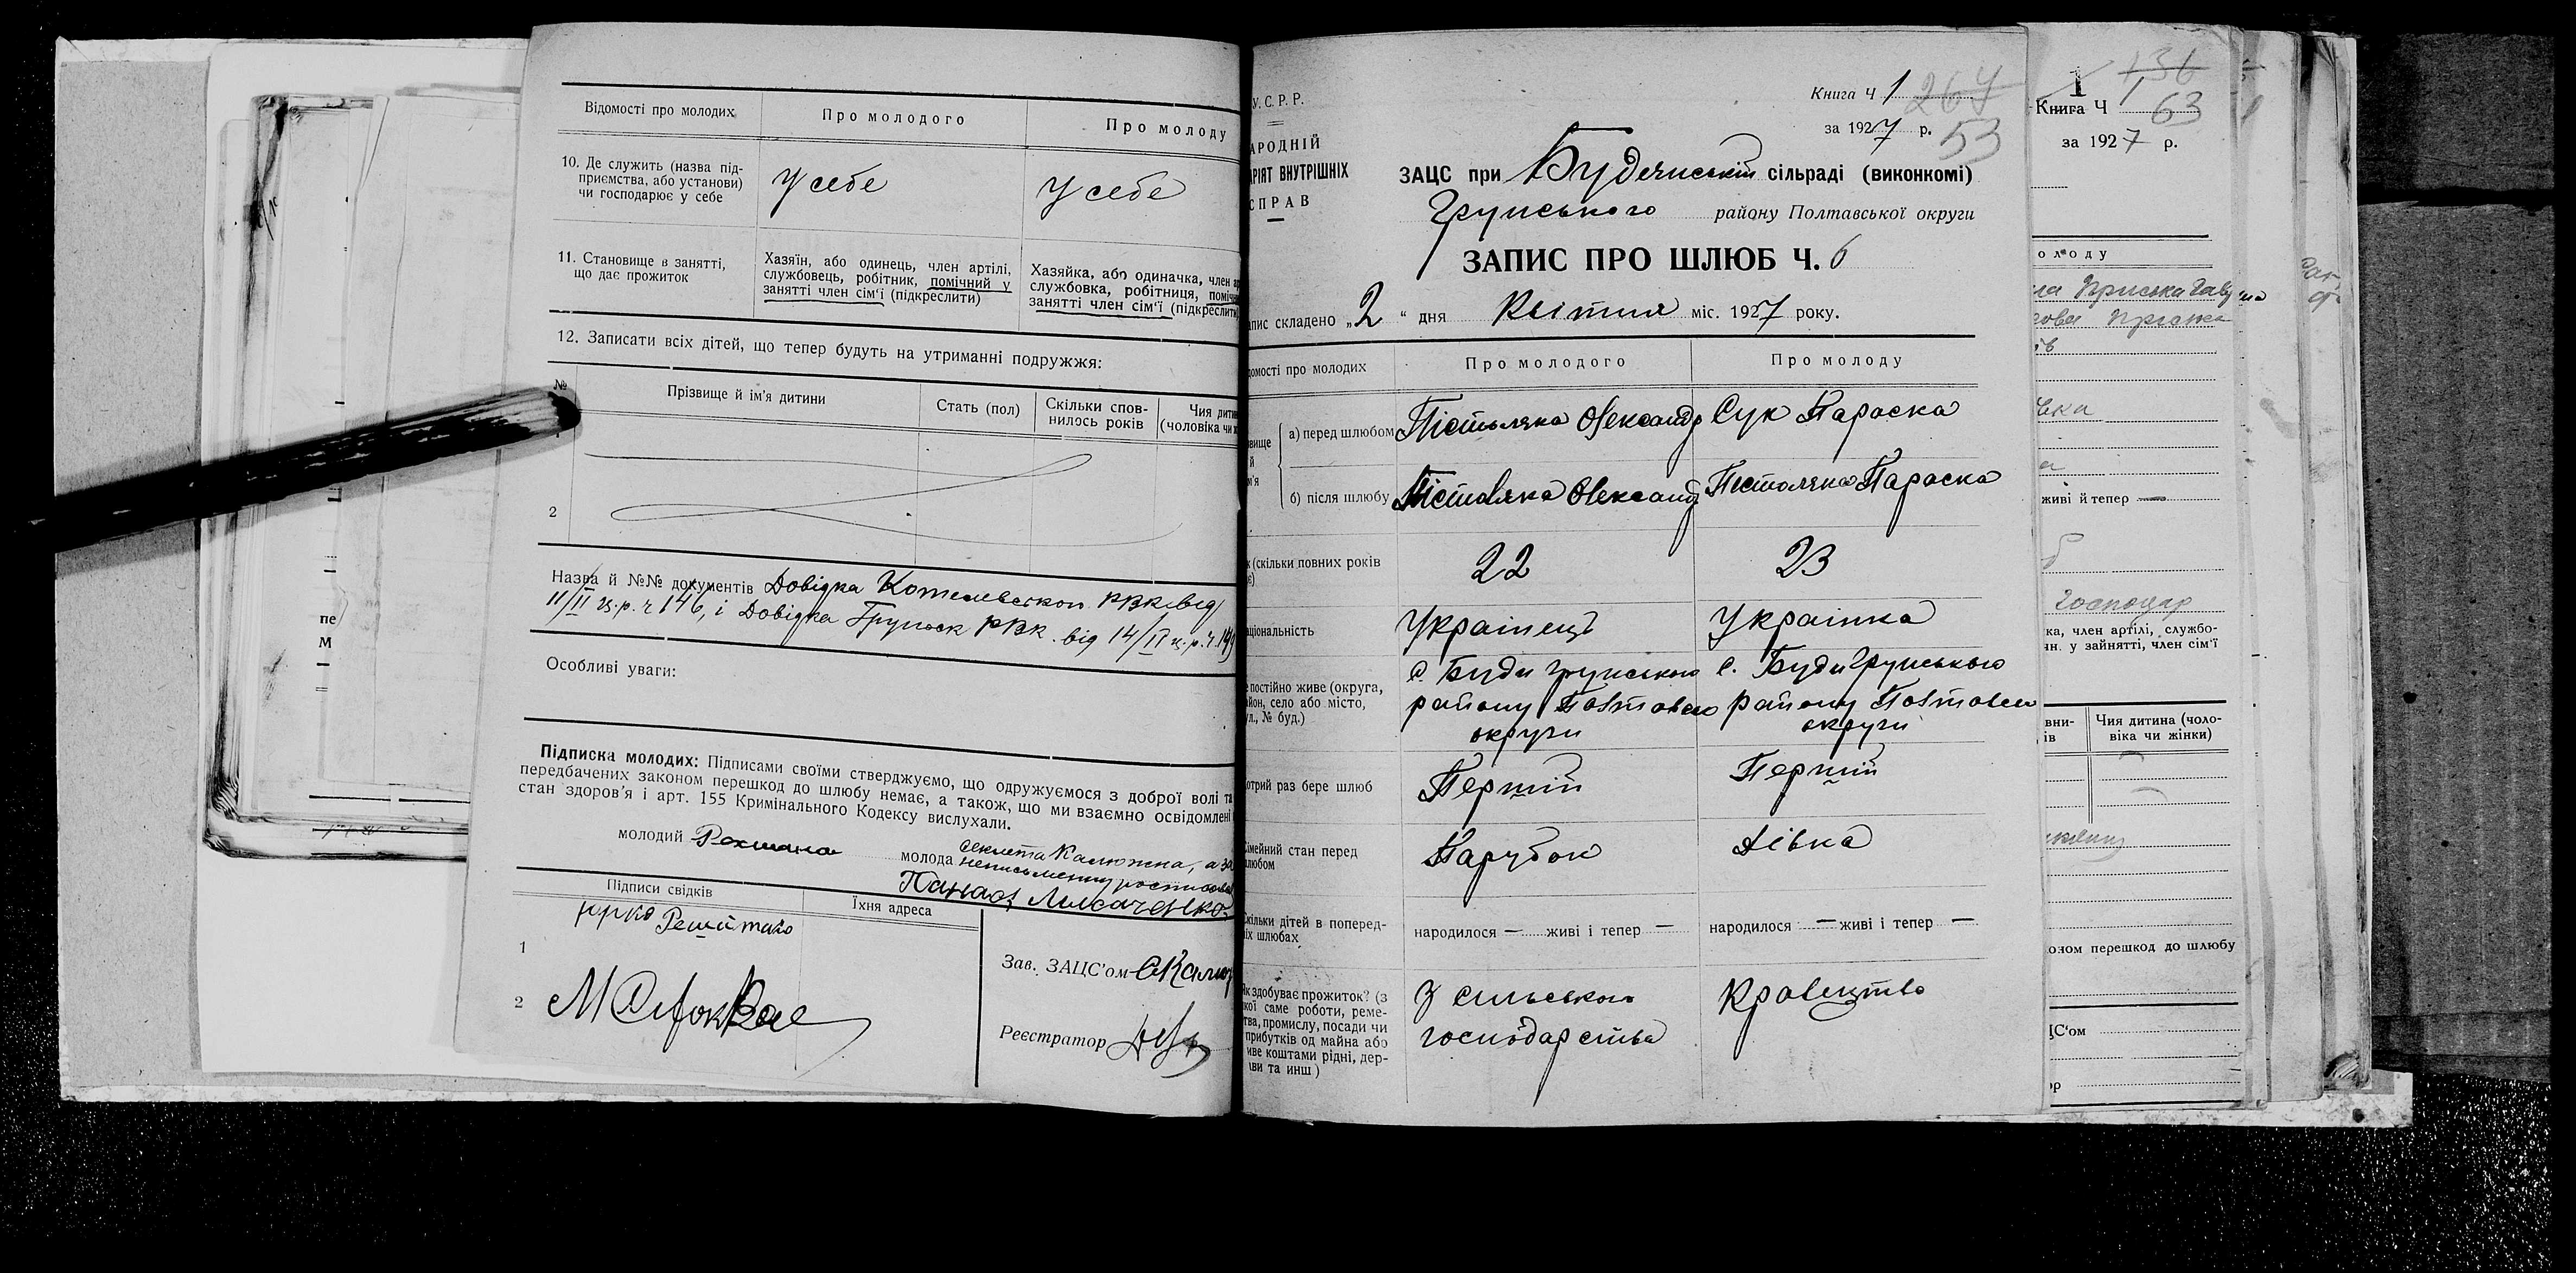 Відомості про молодих
Про молодого
Про молоду
10. Де служить (назва під-
приємства, або установи)
чи господарює у себе
У себе
У себе
11. Становище в занятті,
що дає прожиток
Хазяїн, або одинець, член артілі,
службовець, робітник, помічний у
занятті член сім'ї (підкреслити)
Хазяйка, або одиначка, член
службовка, робітниця,
занятті член сім'ї (підкреслити)
12. Записати всіх дітей, що тепер будуть на утриманні подружжя:
№
Прізвище й ім'я дитини
Стать (пол)
Скільки спов-
нилось років
Чия дити
(чоловіка чи
2
Назва й №№ документів Довідка Котелевськоп РВК від
11/II ц.р. ч 146, і Довідка Груньск РВК. від 14/II ц.р. ч.
Особливі уваги:
Підписка молодих: Підписами своїми стверджуємо, що одружуємося з доброї волі та
передбачених законом перешкод до шлюбу немає, а також, що ми взаємно освідомлені
стан здоров'я і арт. 155 Кримінального Кодексу вислухали.
молодий
молода Секлета Калюжна, а за
неписьменну
Панас
Підписи свідків
Їхня адреса
1
Юрко Решітько
2
Зав. ЗАЦС'ом
Реєстратор
У.С.Р.Р.
АРОДНІЙ
АРІЯТ ВНУТРІШНІХ
СПРАВ
Книга Ч 1 264
за 1927 р. 53
ЗАЦС при Будянській сільраді (виконкомі)
Грунського району Полтавської округи
ЗАПИС ПРО ШЛЮБ Ч. 6
апис складено „2" дня Квітня міс. 1927 року.
домості про молодих
Про молодого
Про молоду
а) перед шлюбом
Пістоляка Олександр
Сук Параска
б) після шлюбу
Пістоляка Олександр
Пістоляка Параска
(скільки повних років
22
23
аціональність
Українець
Українка
постійно живе (округа,
йон, село або місто,
ул., № буд.)
с. Буди Грунського
району Полтавсько
округи
с. Буди Грунського
району Полтавсько
округи
отрий раз бере шлюб
Перший
Перший
імейний стан перед
любом
Парубок
Дівка
кільки дітей в поперед-
іх шлюбах
народилося — живі і тепер —
народилося — живі і тепер —
Як здобуває прожиток? (з
кої саме роботи, реме-
тва, промислу, посади чи
прибутків од майна або
иве коштами рідні, дер-
ави та инш)
З сильського
господарства
Кравецтво
1 136
Книга Ч 1 63
за 1927 р.
олоду
живі й тепер —
господар
ка, член артілі, службо-
ин. у зайнятті, член сім'ї
вни-
ів
Чия дитина (чоло-
віка чи жінки)
оном перешкод до шлюбу
ЦС'ом
ор
пе
М